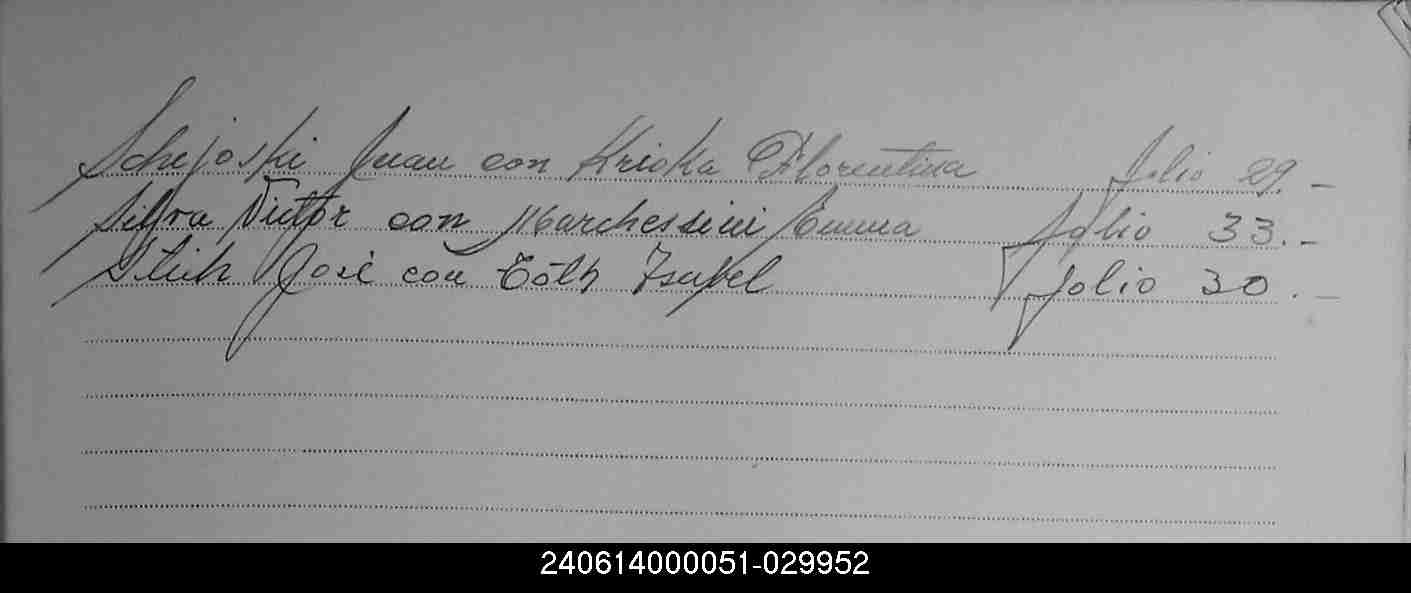 Schejoski Juan con Krioka Florentina Folio 29.-
Silva Victor con Marchessini Emma Folio 33.-
Stich José con Tóth Isabel Folio 30.-
240614000051-029952